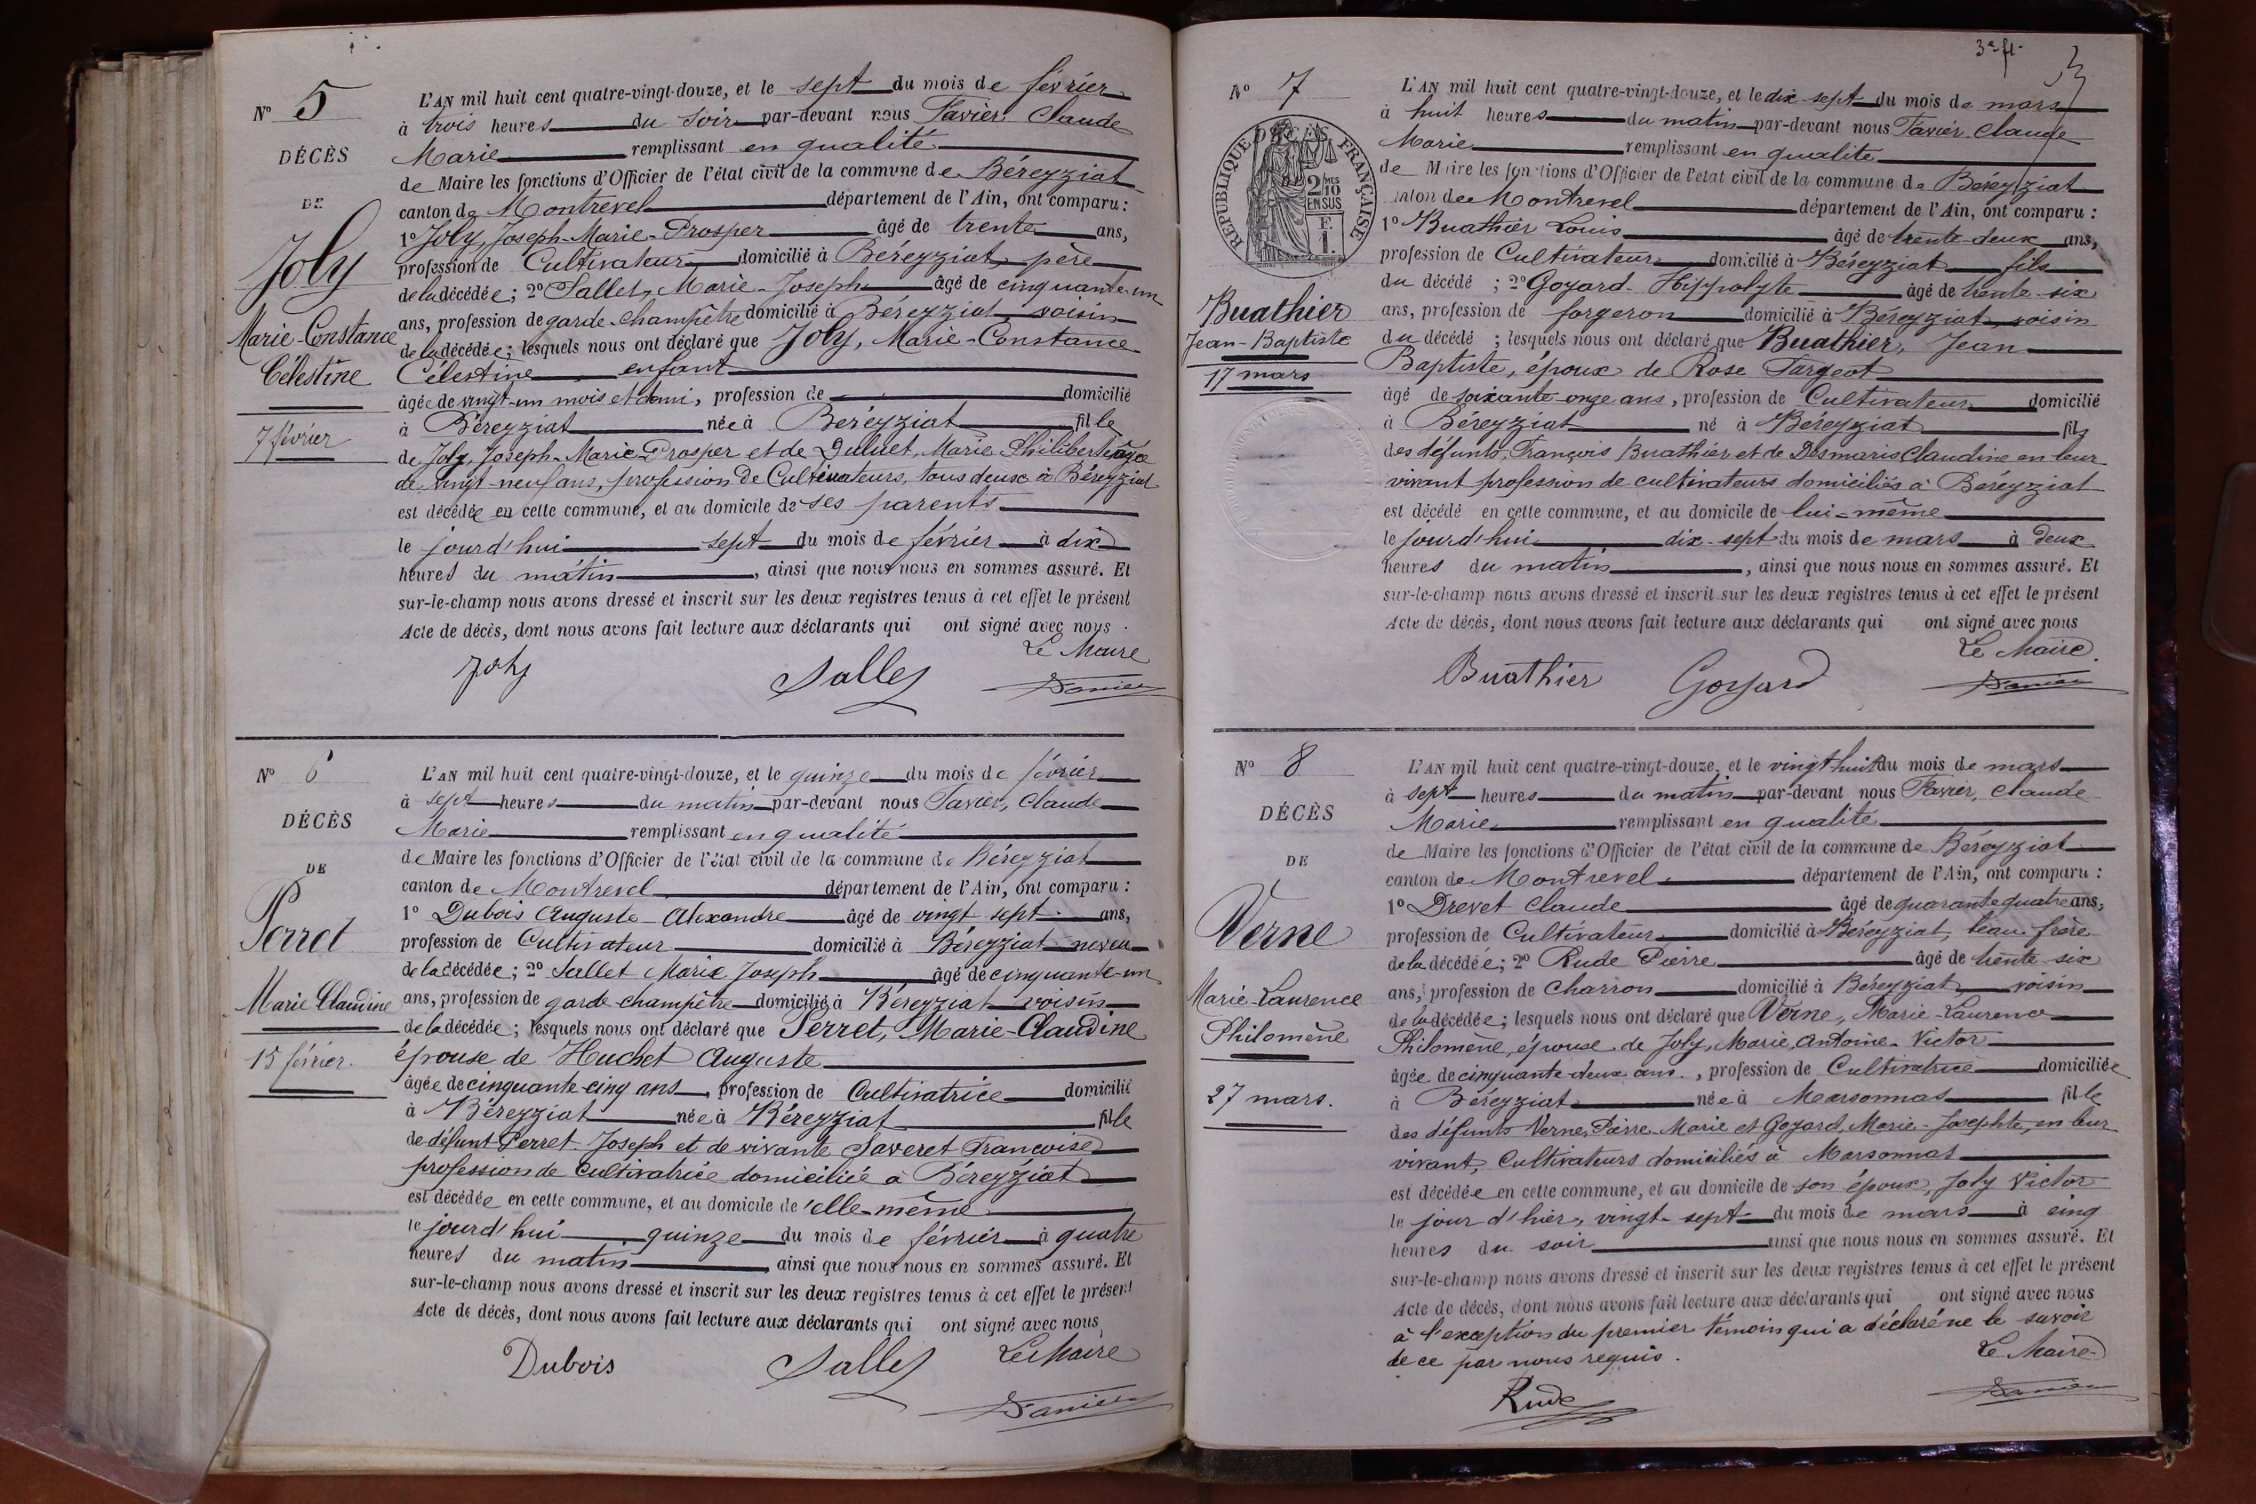 N° 5
DÉCÈS
DE
Joly
Marie-Constance
Célestine
7 février
L'AN mil huit cent quatre-vingt-douze, et le sept du mois de février
à trois heures du soir par-devant nous Favier Claude
Marie remplissant en qualité
de Maire les fonctions d'Officier de l'état civil de la commune de Béreyziat
canton de Montrevel département de l'Ain, ont comparu :
1° Joly, Joseph-Marie-Prosper âgé de trente ans,
profession de Cultivateur domicilié à Béreyziat père
de la décédée ; 2° Sallet, Marie-Joseph âgé de cinquante-un
ans, profession de garde-champêtre domicilié à Béreyziat voisin
de la décédée ; lesquels nous ont déclaré que Joly, Marie-Constance
Célestine enfant
âgée de vingt-un mois et demi, profession de domicilié
à Béreyziat née à Béreyziat fille
de Joly, Joseph-Marie-Prosper et de Marie Philiberte âgée
de vingt-neuf ans, profession de Cultivateurs, tous deux à Béreyziat
est décédée en cette commune, et au domicile de ses parents
le jourd'hui sept du mois de février à dix
heures du matin, ainsi que nous nous en sommes assuré. Et
sur-le-champ nous avons dressé et inscrit sur les deux registres tenus à cet effet le présent
Acte de décès, dont nous avons fait lecture aux déclarants qui ont signé avec nous.
Le Maire
Joly Sallet Favier
N° 6
DÉCÈS
DE
Perret
Marie Claudine
15 février.
L'AN mil huit cent quatre-vingt-douze, et le quinze du mois de février
à sept heures du matin par-devant nous Favier, Claude
Marie remplissant en qualité
de Maire les fonctions d'Officier de l'état civil de la commune de Béreyziat
canton de Montrevel département de l'Ain, ont comparu :
1° Dubois Auguste-Alexandre âgé de vingt sept ans,
profession de Cultivateur domicilié à Béreyziat neveu
de la décédée ; 2° Sallet Marie Joseph âgé de cinquante-un
ans, profession de garde-champêtre domicilié à Béreyziat voisin
de la décédée ; lesquels nous ont déclaré que Perret, Marie-Claudine
épouse de Huchet Auguste
âgée de cinquante-cinq ans, profession de Cultivatrice domicilié
à Béreyziat née à Béreyziat fille
de défunt Perret Joseph et de vivante Saveret Françoise
profession de Cultivatrice domiciliée à Béreyziat
est décédée en cette commune, et au domicile de elle-même
le jourd'hui quinze du mois de février à quatre
heures du matin ainsi que nous nous en sommes assuré. Et
sur-le-champ nous avons dressé et inscrit sur les deux registres tenus à cet effet le présent
Acte de décès, dont nous avons fait lecture aux déclarants qui ont signé avec nous,
Dubois Sallet Le Maire
Favier
3e ft.
N° 7
DÉCÈS
RÉPUBLIQUE FRANÇAISE
2/10 EN SUS
F. 1.
Buathier
Jean-Baptiste
17 mars
L'AN mil huit cent quatre-vingt-douze, et le dix-sept du mois de mars
à huit heures du matin par-devant nous Favier Claude
Marie remplissant en qualité
de Maire les fonctions d'Officier de l'état civil de la commune de Béreyziat
canton de Montrevel département de l'Ain, ont comparu :
1° Buathier Louis âgé de trente-deux ans,
profession de Cultivateur domicilié à Béreyziat fils
du décédé ; 2° Goyard Hippolyte âgé de trente-six
ans, profession de forgeron domicilié à Béreyziat, voisin
du décédé ; lesquels nous ont déclaré que Buathier, Jean
Baptiste, époux de Rose Fargeot
âgé de soixante-onze ans, profession de Cultivateur domicilié
à Béreyziat né à Béreyziat fils
des défunts, François Buathier et de Desmaris Claudine en leur
vivant profession de cultivateurs domiciliés à Béreyziat
est décédé en cette commune, et au domicile de lui-même
le jourd'hui dix-sept du mois de mars à deux
heures du matin, ainsi que nous nous en sommes assuré. Et
sur-le-champ nous avons dressé et inscrit sur les deux registres tenus à cet effet le présent
Acte de décès, dont nous avons fait lecture aux déclarants qui ont signé avec nous
Le Maire.
Buathier Goyard Favier
N° 8
DÉCÈS
DE
Verne
Marie-Laurence
Philomène
27 mars.
L'AN mil huit cent quatre-vingt-douze, et le vingt huit du mois de mars
à sept heures du matin par-devant nous Favier, Claude
Marie remplissant en qualité
de Maire les fonctions d'Officier de l'état civil de la commune de Béreyziat
canton de Montrevel département de l'Ain, ont comparu :
1° Drevet Claude âgé de quarante quatre ans,
profession de Cultivateur domicilié à Béreyziat, beau-frère
de la décédée ; 2° Rude Pierre âgé de trente-six
ans, profession de Charron domicilié à Béreyziat voisin
de la décédée ; lesquels nous ont déclaré que Verne, Marie-Laurence
Philomène, épouse de Joly, Marie, Antoine-Victor
âgée de cinquante-deux ans, profession de Cultivatrice domiciliée
à Béreyziat née à Marsonnas fille
des défunts Verne, Pierre Marie et Goyard, Marie-Josephte, en leur
vivant, Cultivateurs domiciliés à Marsonnas
est décédée en cette commune, et au domicile de son époux, Joly Victor
le jour d'hier, vingt-sept du mois de mars à cinq
heures du soir ainsi que nous nous en sommes assuré. Et
sur-le-champ nous avons dressé et inscrit sur les deux registres tenus à cet effet le présent
Acte de décès, dont nous avons fait lecture aux déclarants qui ont signé avec nous
à l'exception du premier témoin qui a déclaré ne le savoir
de ce par nous requis.
Le Maire
Rude Favier